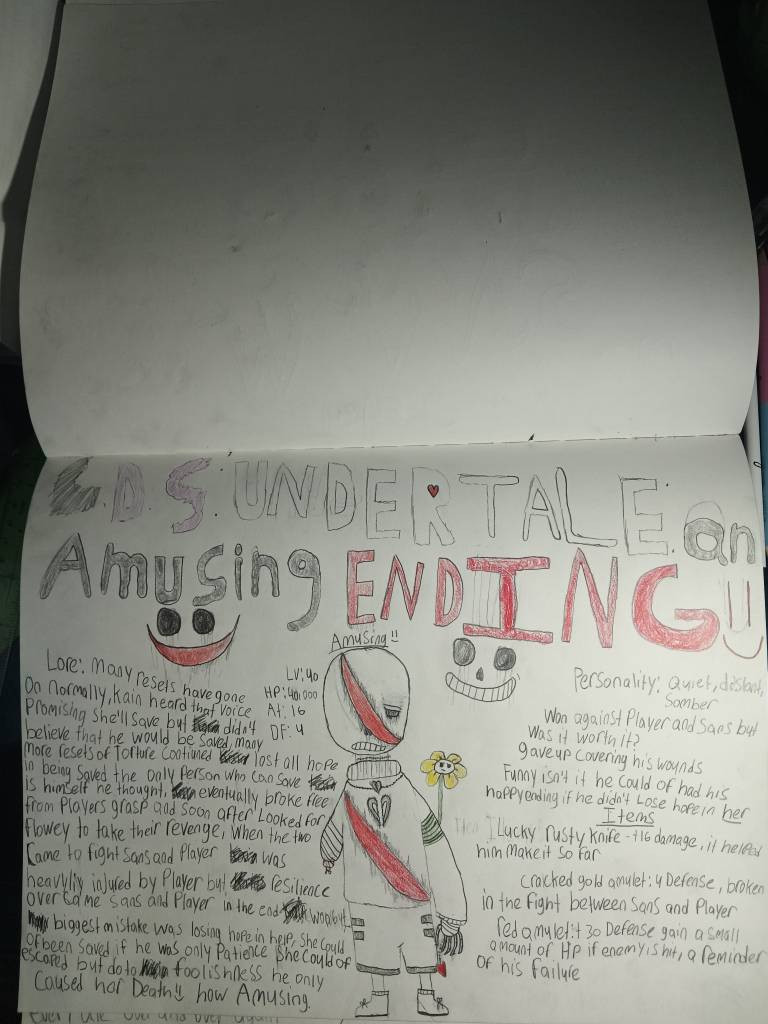 C.D.S: UNDERTALE: an
Amusing ENDING!!
Amusing!!
LV: 40
HP: 40,000
At: 16
DF: 4
Lore: many resets have gone
On normally, Kain heard that voice
Promising She'll save but didn't
believe that he would be saved, many
more resets of Torture Continued lost all hope
in being Saved the only Person who Can Save
is himself he thought, eventually broke free
from Players grasp and soon after Looked for
flowey to take their revenge, When the two
Came to fight Sans and Player was
heavyliy injured by Player but resilience
overcame Sans and Player in the end won but
biggest mistake was losing hope in help, She Could
Of been Saved if he was only Patience She Could of
escaped but do to foolishness he only
Caused her Death!! how Amusing.
Personality: Quiet, distant,
Somber
Won against Player and Sans but
Was it worth it?
gave up Covering his wounds
Funny isn't it he Could of had his
happy ending if he didn't Lose hope in her
Items
Lucky rusty Knife - +16 damage, it helped
him make it so far
Cracked gold amulet: 4 Defense, broken
in the fight between Sans and Player
red amulet: +30 Defense gain a Small
amount of HP if enemy is hit, a reminder
of his failure
every time over and over again